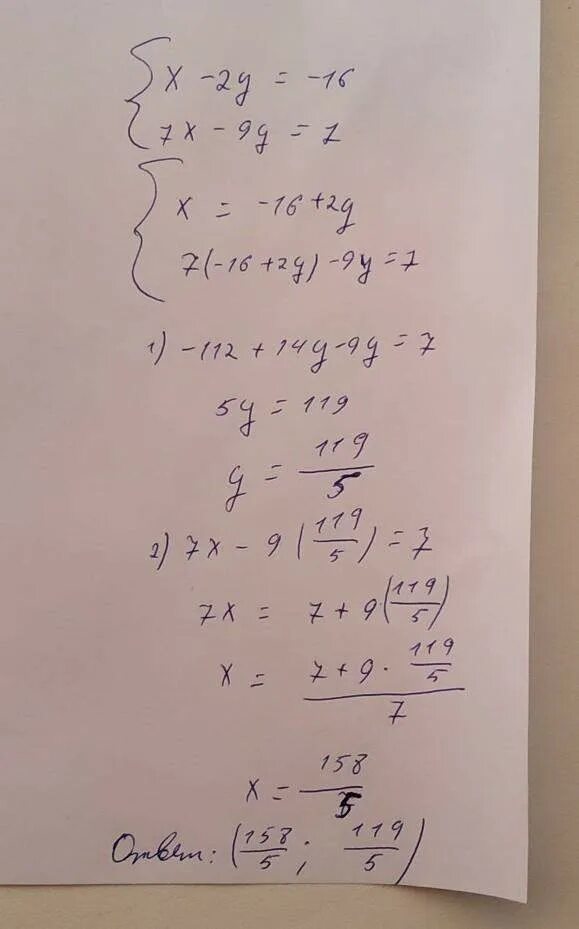 x - 2y = -16
7x - 9y = 7
x = -16 + 2y
7(-16 + 2y) - 9y = 7
1) -112 + 14y - 9y = 7
5y = 119
y = 119/5
2) 7x - 9(119/5) = 7
7x = 7 + 9·(119/5)
x = (7 + 9 · 119/5)/7
x = 158/5
Ответ: (158/5 ; 119/5)